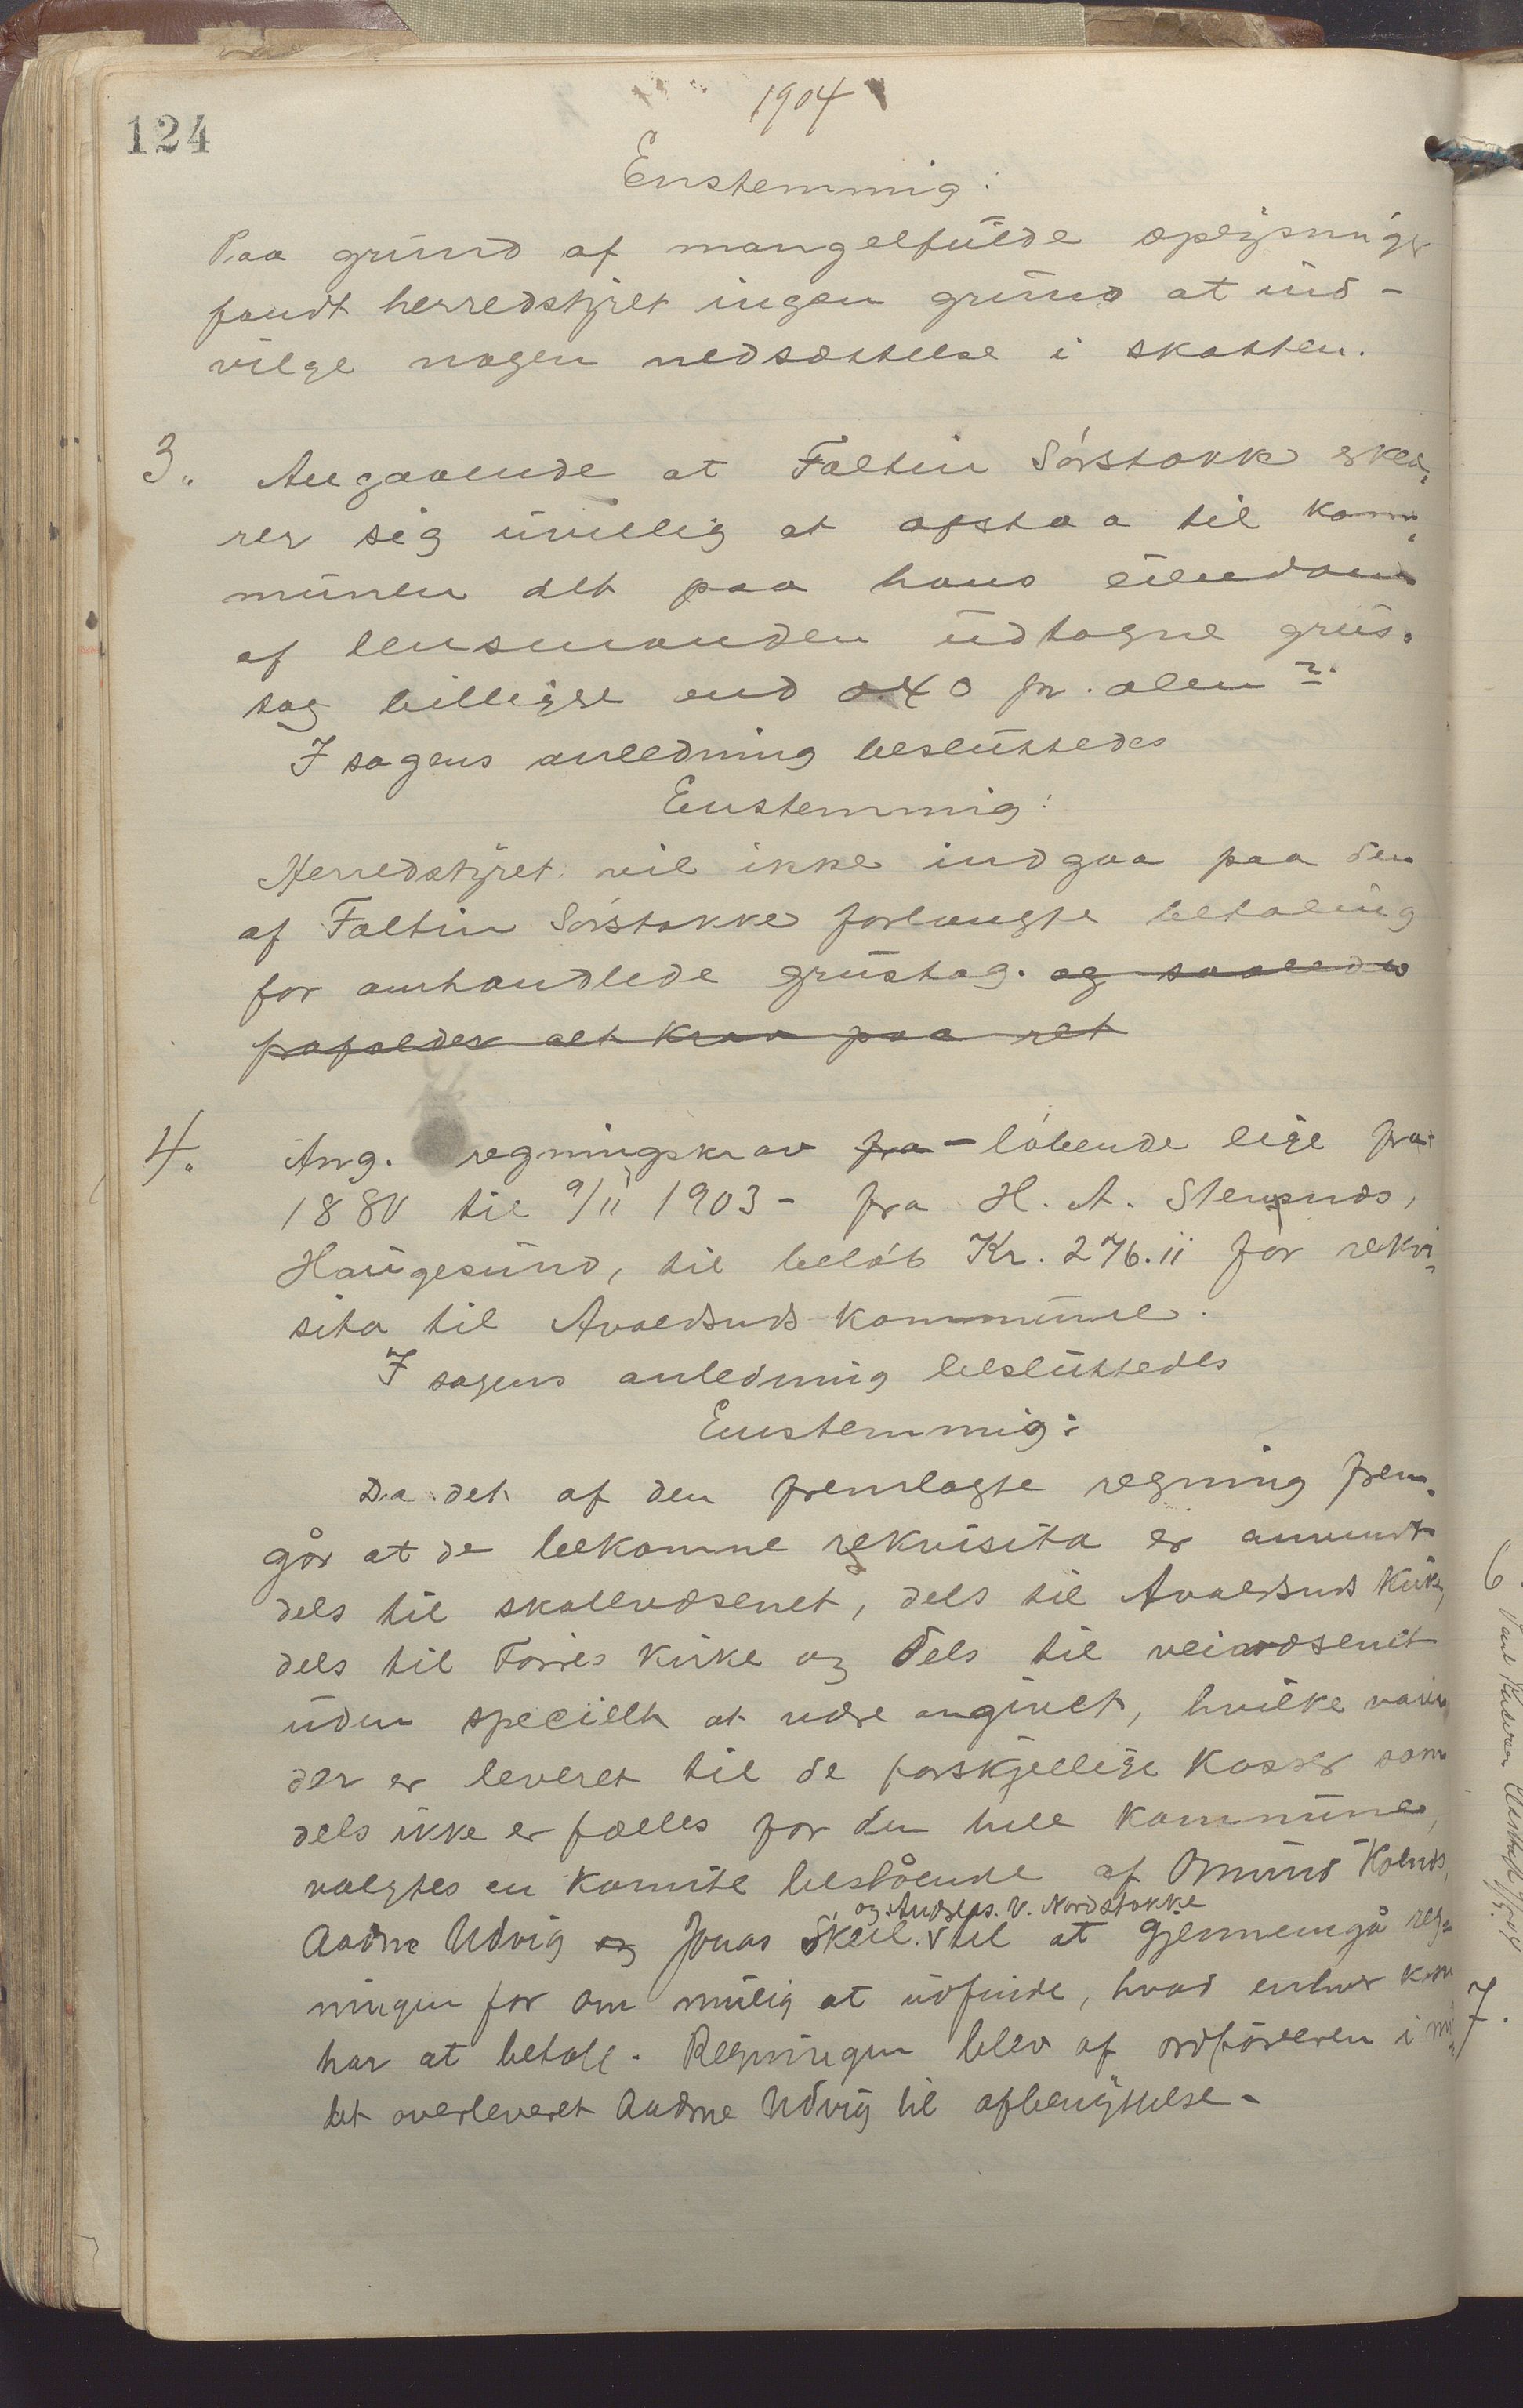 1904
124
Enstemmig:
Paa grund af mangelfulde oplysninger
fandt herredstyret ingen grund at ind-
vilge nogen nedsættelse i skatten.
3. Angaaende at Faltin Sörstokke erklæ-
rer sig uvillig at afstaa til kom-
munen det paa hans eiendom
af lensmanden udtagne grus-
tag billigere end 0.40 pr. alen 2.
I sagens anledning besluttedes
Enstemmig:
Herredstyret vil ikke indgaa paa den
af Faltin Sörstokke forlangte betaling
for omhandlede grustag. og saaledes
frafalder alt krav paa ret
4. Ang. regningskrav fra - löbende lige fra
1880 til 9/11 1903 - fra H. A. Stensnes,
Haugesund, til belöb Kr. 276.11 for rekvi-
sita til Avaldsnds kommune.
I sagens anledning besluttedes
Enstemmig:
Da det af den fremlagte regning frem-
går at de bekomne rekvisita er anvendt
dels til skolevæsenet, dels til Avaldsnds Kirke,
dels til Torves Kirke og dels til veivæsenet
uden specielt at være angivet, hvilke varer
der er leveret til de forskjellige Kasser som
dels ikke er fælles for den hele kommune,
valgtes en komite bestående af Omund Kolnds,
og Andreas. V. Nordstokke
Aadne Udvig og Jonas Skeie. v til at gjennemgå reg-
ningen for om mulig at udfinde, hvad enhver kom
har at betale. Regningen blev af ordföreren i mö-
tet overleveret Aadne Udvig til afbenyttelse.
6.
7.